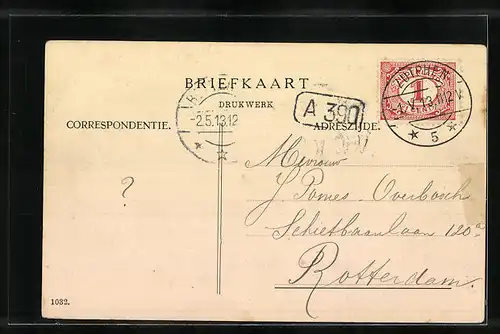 BRIEFKAART
DRUKWERK
CORRESPONDENTIE.
ADRESZIJDE.
ZUTPHEN
1
5
-2.5.13.12
A 390
?
Mevrouw
J Pomes-Overbosch
Schietbaanlaan 120a
Rotterdam.
1032.